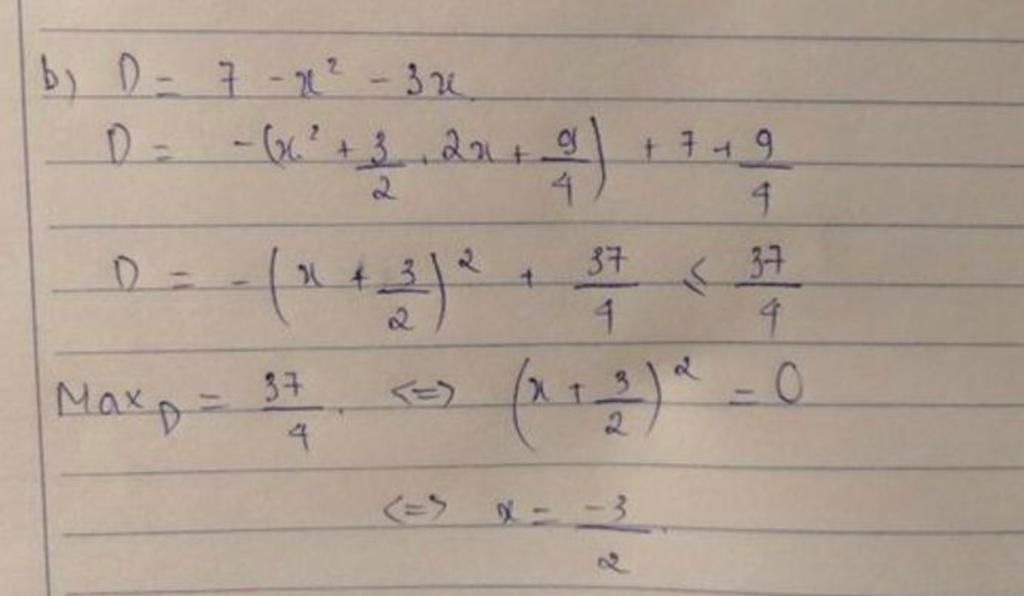 b) D = 7 - x² - 3x
D = -(x² + 3/2 . 2x + 9/4) + 7 + 9/4
D = -(x + 3/2)² + 37/4 ≤ 37/4
Max_D = 37/4. <=> (x + 3/2)² = 0
<=> x = -3/2.